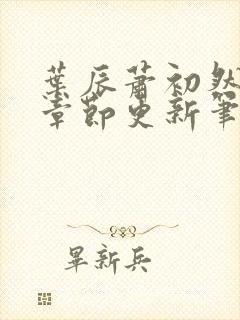 葉辰蕭初然
章節更新筆
畢新兵